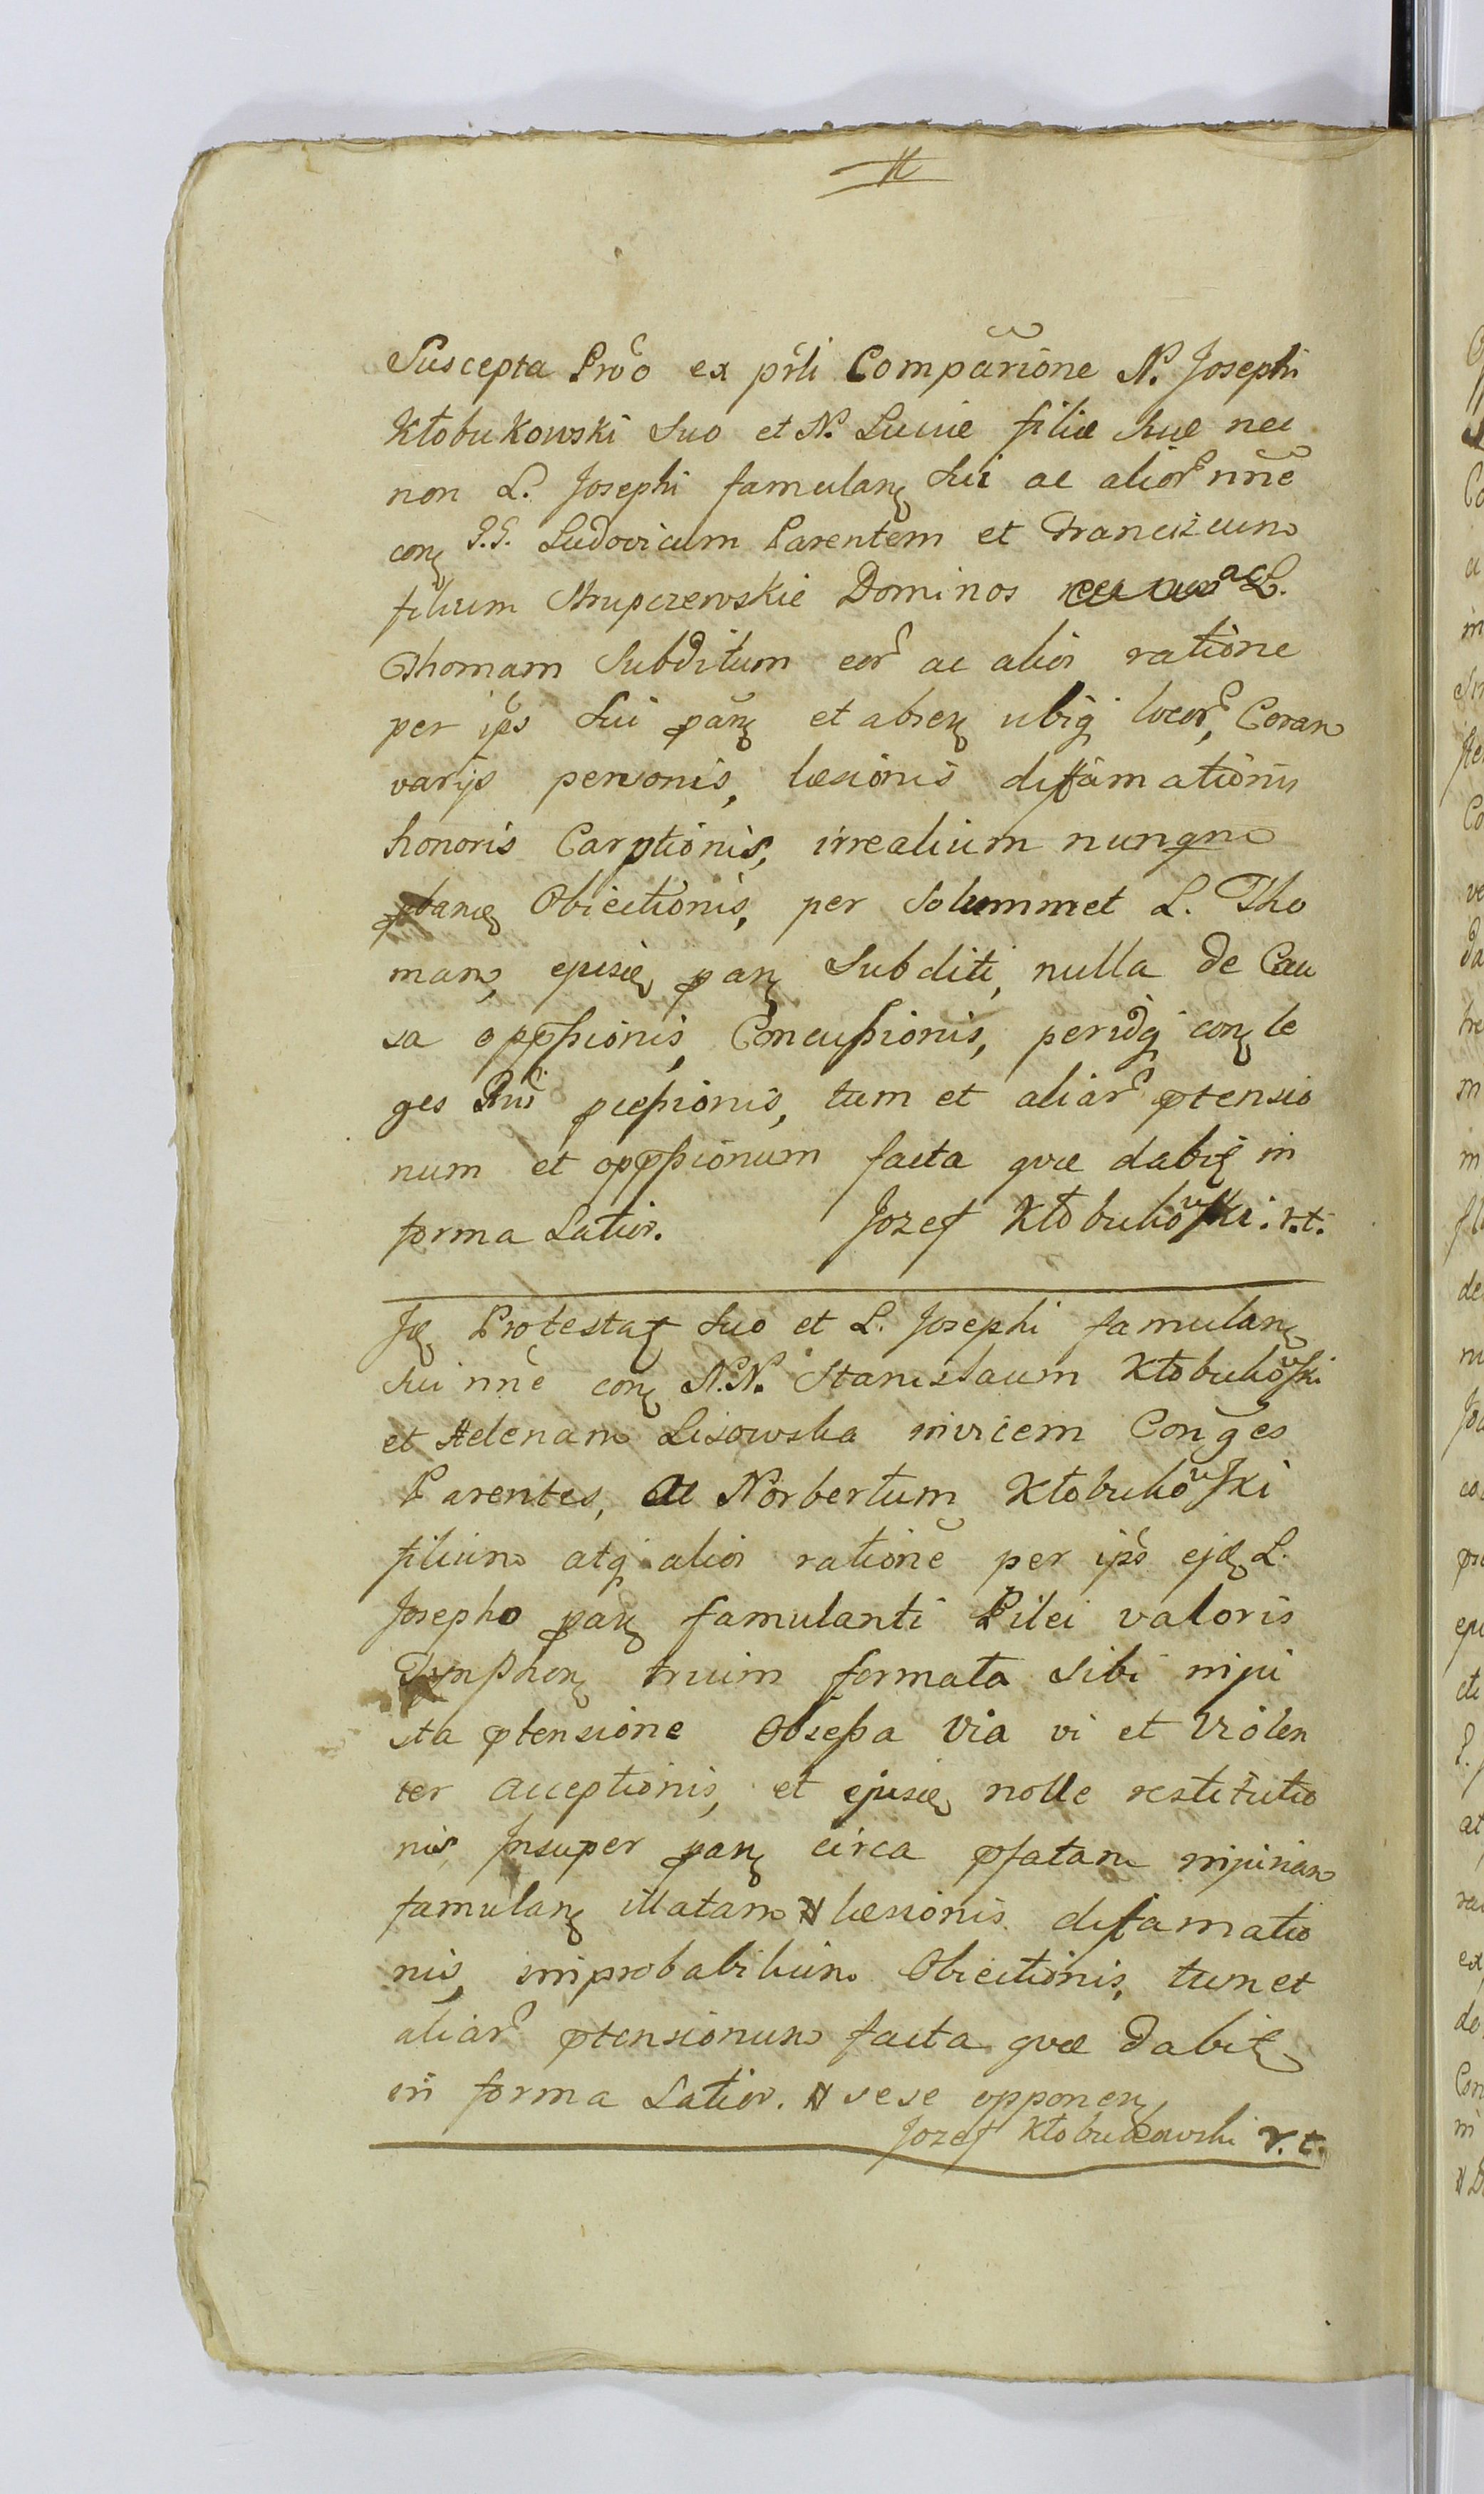 Suscepta Prõo ex prli Comparĩone N. Josephi
Kłobukowski suo et N. Luciæ filiæ suæ nec
non L. Josephi famulanꝫ sui ac alior̃ nñe
conꝫ G.G. Ludovicum Parentem et Franciszcum
filium Skrupczewskie Dominos ac L.
Thomam Subditum eor̃ ac alios ratione
per ip̃s sui p̃anꝫ et absenꝫ ubiq̃ locor̃, Coram
varijs personis, læsionis diffamationis
honoris Carptionis, irrealium nunqm
pbanꝫ Obiectionis, per solummet L. Tho
mam, ejusdꝫ panꝫ Subditi, nulla de Cau
sa opp̃ssionis, Concussionis, periq̃ conꝫ le
ges pcussionis, tum et aliar̃ ptensio
num et oppssionum facta quæ dabit̃ in
forma Latior. Jozef Kłobukowski. r.t.
Jdꝫ Protestat̃ suo et L. Josephi famulanꝫ
sui nñe conꝫ N.N. Stanislaum Kłobukowski
et Helenam Lisowska invicem Conĩges
Parentes, ac Norbertum Kłobukowski
filium atq̃ alios ratione per ip̃s ejdꝫ L.
Josepho panꝫ famulanti Pilei valoris
Tynphonꝫ trium formata sibi inju
sta ptensione Obsessa via vi et violen
ter acceptionis, et ejusdꝫ nolle restitutio
nis, Jnsuper panꝫ circa pfatam injuriam
famulanꝫ illatam # læsionis diffamatio
nis, improbabilium Obiectionis, tum et
aliar̃ ptensionum facta quæ dabit̃
in forma Latior. # sese opponenꝫ
Jozef Kłobukowski r.t.